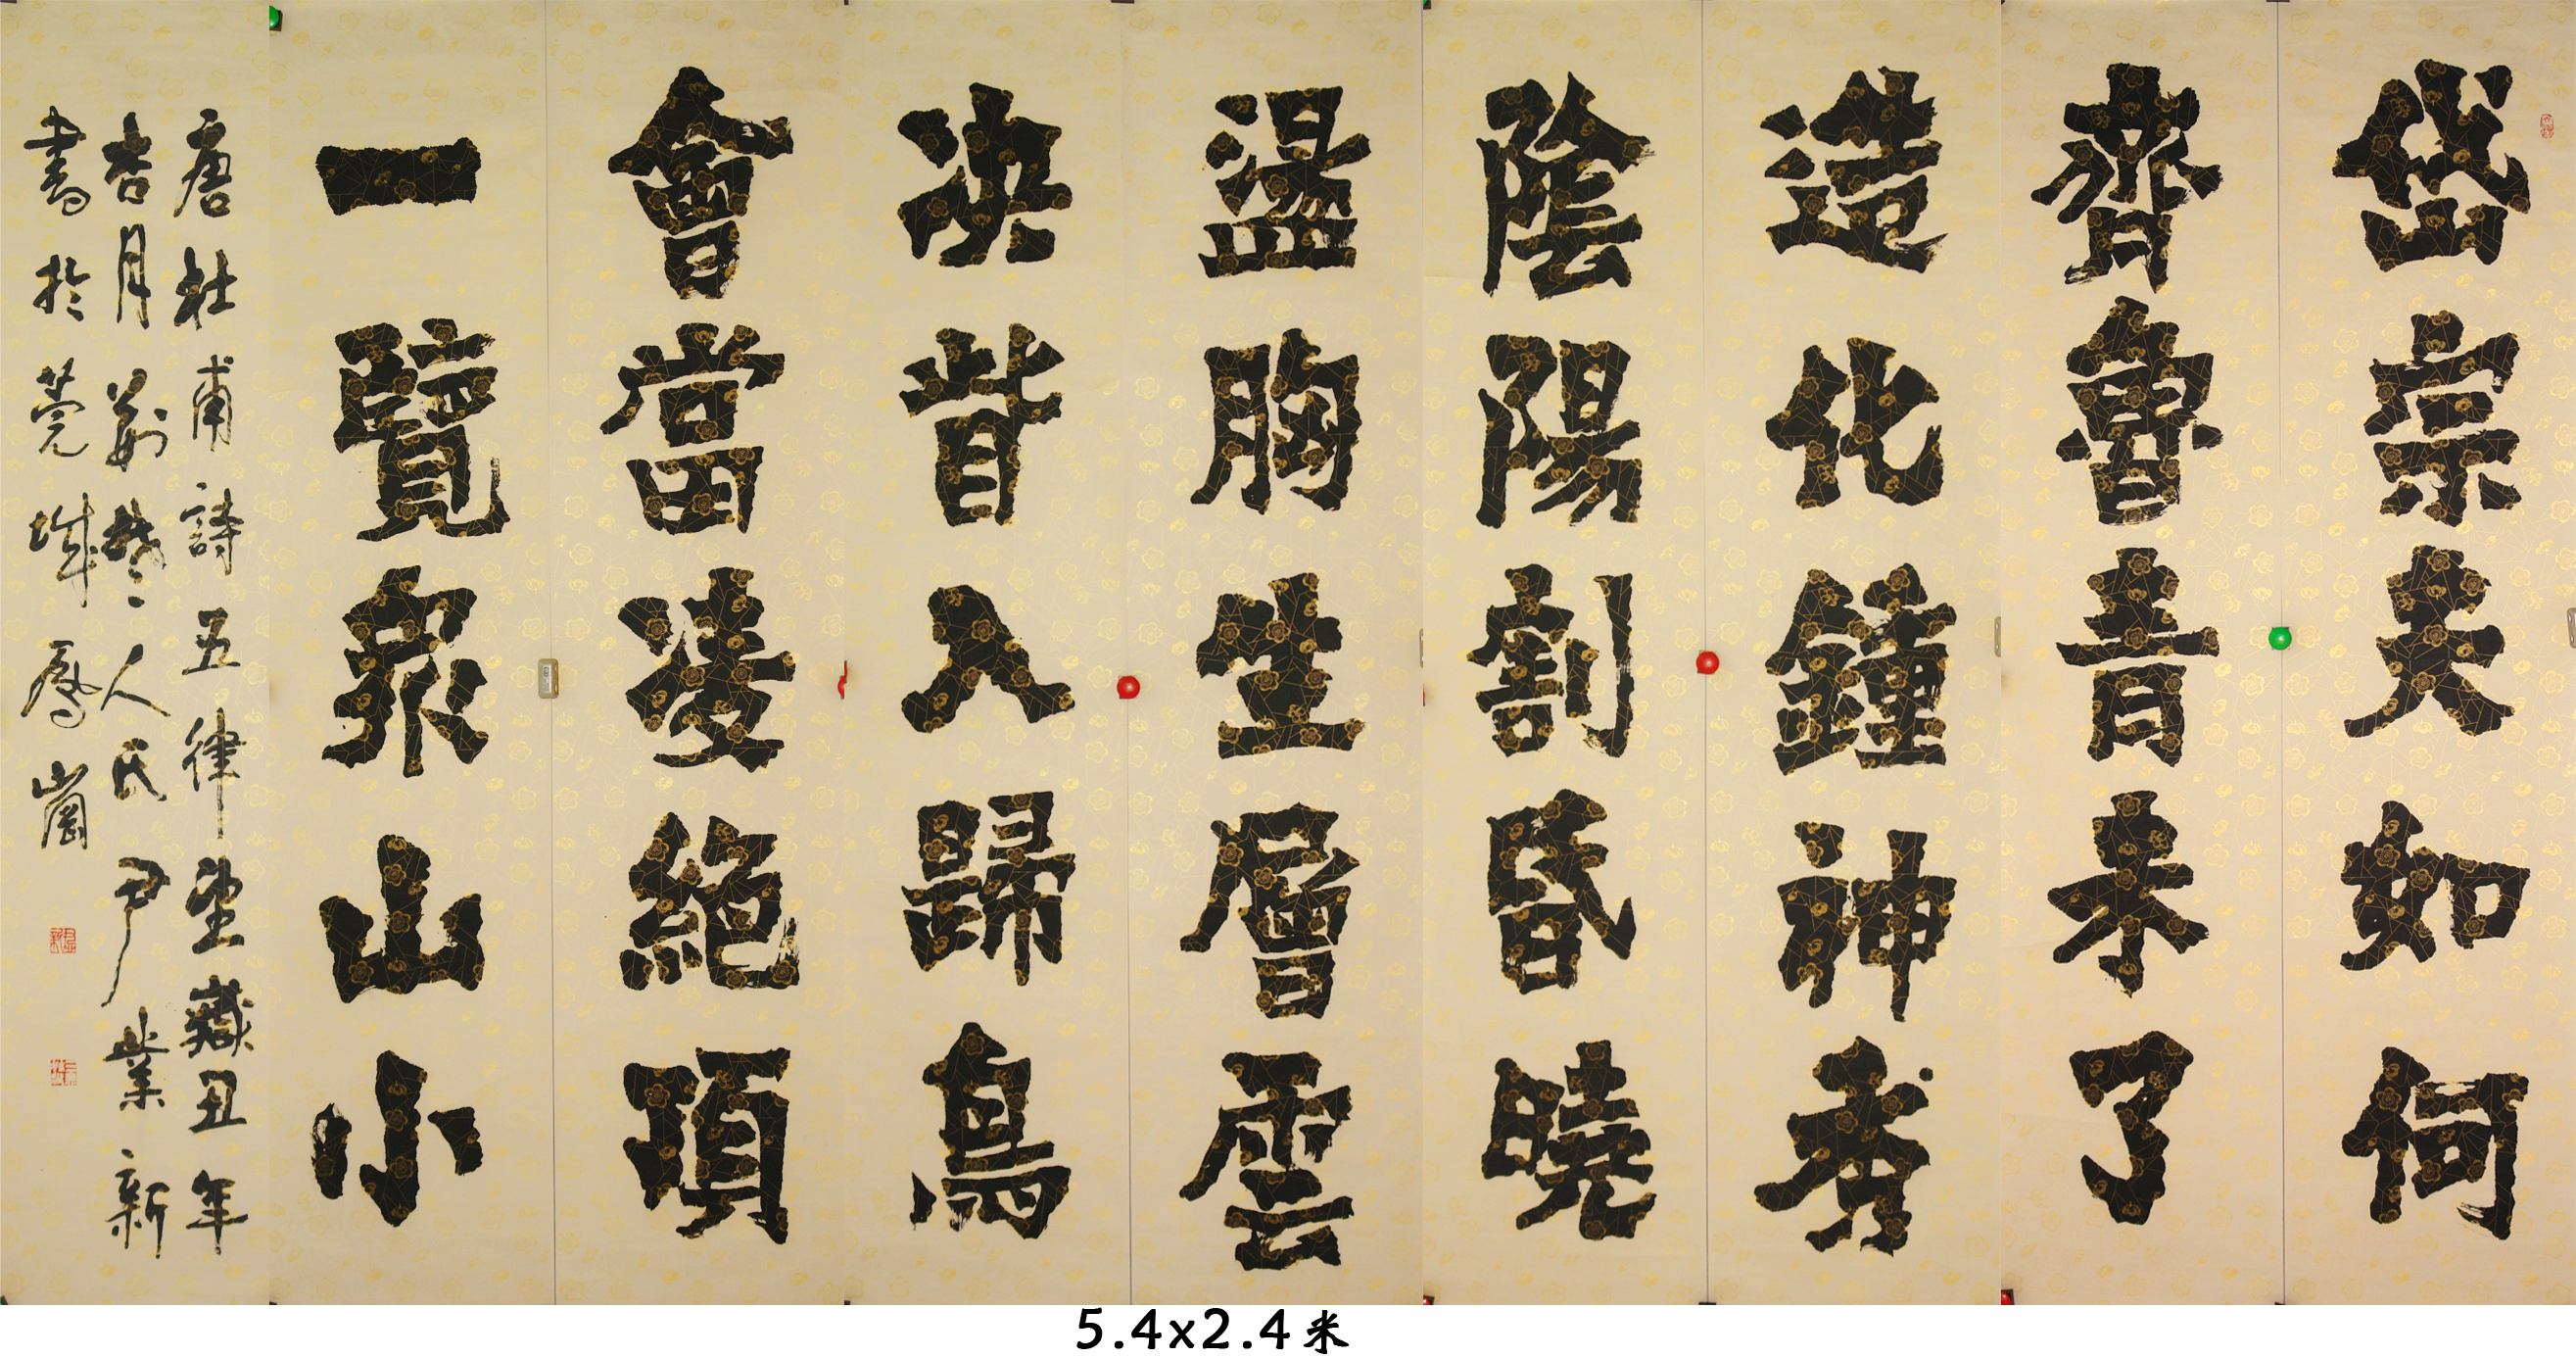 岱宗夫如何
齊魯青未了
造化鍾神秀
陰陽割昏曉
盪胸生層雲
決眥入歸鳥
會當凌絕頂
一覽眾山小
唐杜甫詩五律望嶽丑年
杏月荊楚人氏尹業新
書於莞城鳳崗
5.4x2.4米